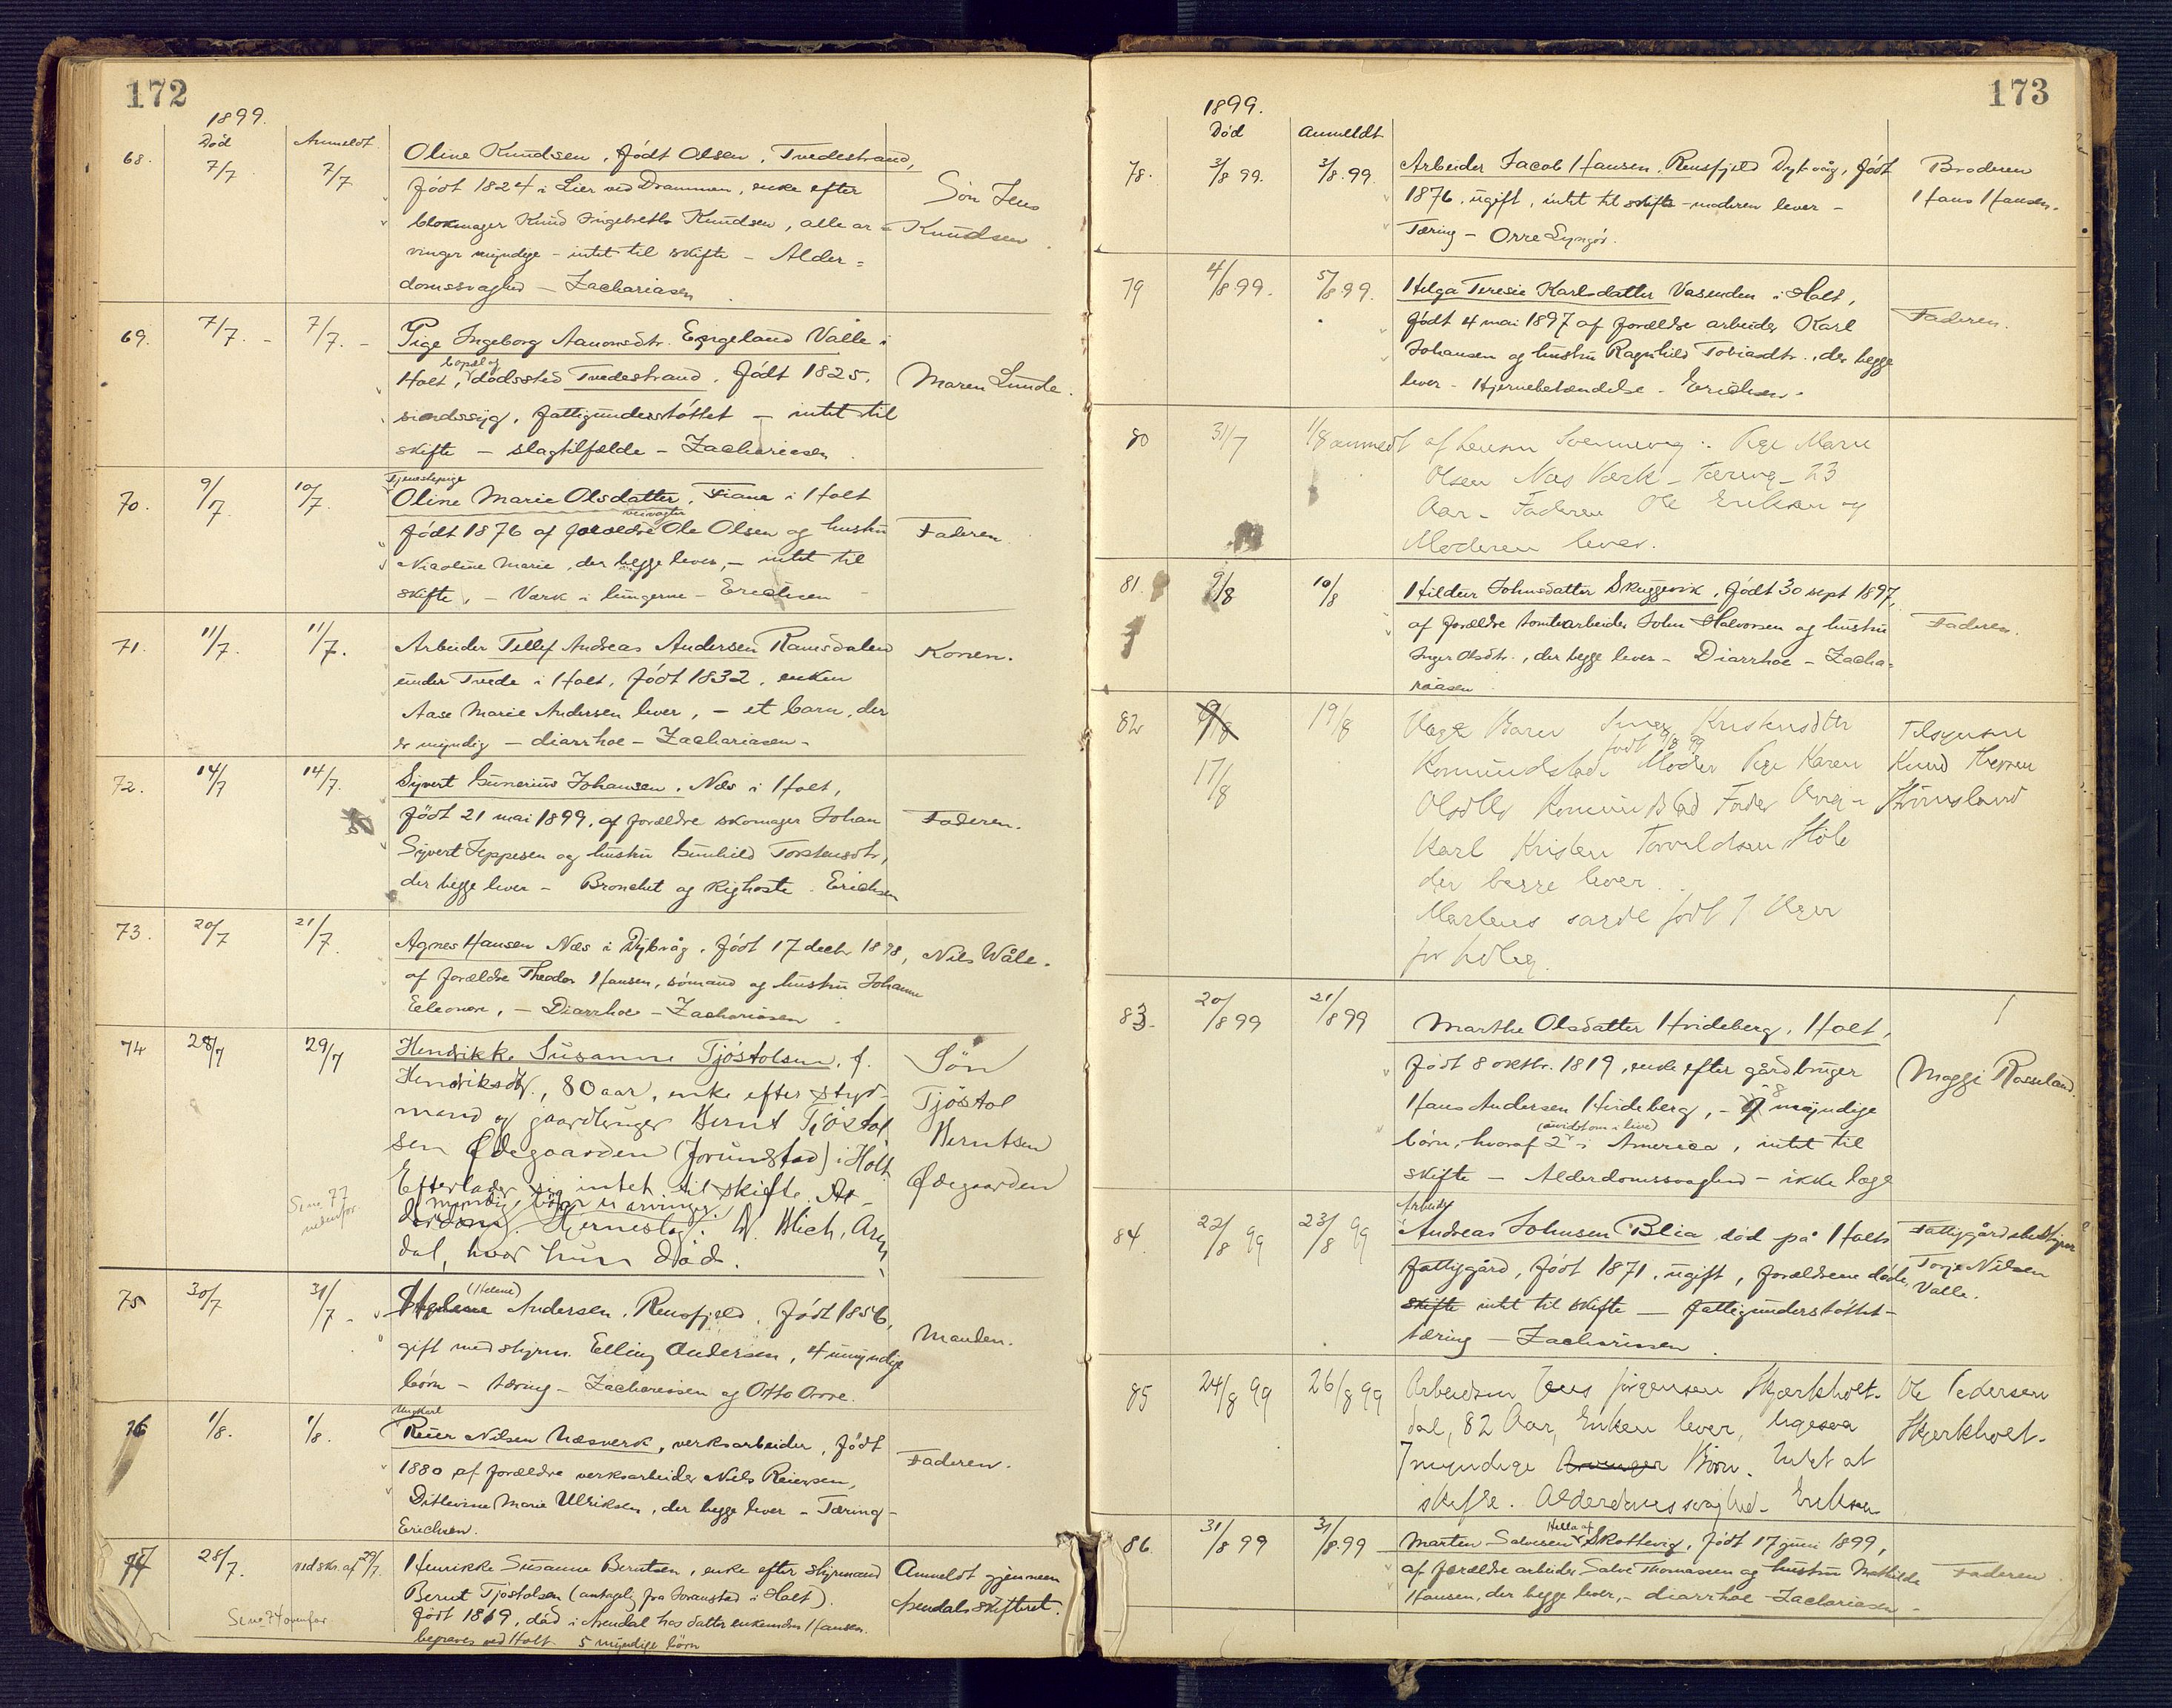 172
1899.
Död Anmeldt
68. 7/7 7/7 Oline Knudsen, födt Olsen, Tvedestrand,
födt 1824 i Lier ved Drammen, enke efter
Sön Jens
blokmager Knud Ingebreths Knudsen, alle ar=
Knudsen.
vinger myndige - intet til skifte - Alder=
domssvaghed - Zachariasen
69. 7/7. - 7/7. - Pige Ingeborg Aanonsdtr. Espeland Valle i
bopæl og
Holt, dödssted Tvedestrand. Födt 1825.
Maren Lunde.
sindssyg, fattigunderstöttet - intet til
skifte - slagtilfælde - Zachariasen
Tjenestepige
70. 9/7. 10/7. Oline Marie Olsdatter, Fiane i Holt
veivogter
födt 1876 af forældre Ole Olsen og hustru
Faderen.
Nicoline Marie, der begge lever, - intet til
skifte, - Værk i lungerne - Erichsen
71. 11/7. 11/7. Arbeider Tellef Andreas Andersen Ramsdalen
Konen.
under Tvede i Holt, födt 1832, enken
Aase Marie Andersen lever, - et barn, der
er myndig - diarrhoe - Zachariasen -
72. 14/7 14/7. Syvert Gunerius Johansen. Næs i Holt,
födt 21 mai 1899, af forældre skomager Johan
Faderen.
Syvert Jeppesen og hustru Gunhild Torstensdtr,
der begge lever - Bronchit og kighoste - Erichsen
73. 20/7 21/7. Agnes Hansen Næs i Dybvåg. Födt 17 decbr 1898,
Nils Wåle.
af forældre Theodor Hansen, sömand og hustru Johanne
Eleonore, - Diarrhoe - Zachariasen
74 28/7 29/7 Henrikke Susanne Tjöstolsen, f.
Sön
Henriksdtr., 80 aar, enke efter styr-
Tjöstol
mand og gaardbruger Bernt Tjöstol
Berntsen
sen Ødegaarden (Jorunstad) i Holt
Ødegaarden
Efterlader sig intet til skifte.
Se no 77
nedenfor
myndige börn er arvinger.
Hjerneslag. Dr. Blich, Aren
dal, hvor hun död.
(Helene)
75 30/7 31/7 - Andersen. Rensfjeld. födt 1856,
Manden.
gift med styrm. Elling Andersen, 4 umyndige
börn - tæring - Zachariasen og Otto Orre.
Ungkarl
76 1/8. 1/8. Reier Nilsen Næsverk, verksarbeider, födt
Faderen.
1880 af forældre verksarbeider Nils Reiersen,
Ditlevine Marie Ulriksen, der begge lever - Tæring -
Erichsen.
77 28/7. ved skr. af 29/7. Henrikke Susanne Berntsen, enke efter styrmand
Anmeldt gjennem
Bernt Tjöstolsen (antagelig fra Joranstad i Holt).
Arendals skifteret.
Se no 74 ovenfor
födt 1819, död i Arendal hos datter enkemadm Hansen.
begraves ved Holt. 5 myndige börn
173
1899.
Död Anmeldt
78. 3/8 99. 3/8. 99. Arbeider Jacob Hansen. Rensfjeld Dybvåg, födt
Broderen
1876, ugift, intet til skifte - moderen lever -
Hans Hansen.
Tæring - Orre Lyngör.
79 4/8 99. 5/8 99. Helga Teresie Karlsdatter Vasenden i Holt,
Faderen.
födt 4 mai 1897 af forældre arbeider Karl
Johansen og hustru Ragnhild Tobiasdtr., der begge
lever - Hjernebetændelse - Erichsen.
80 31/7 1/8 anmeldt af Svenneveg: Pige Marie
Olsen Næs Værk - Tæring - 23
Aar - Faderen Ole Eriksen og
Moderen lever.
81. 9/8 10/8 Hildur Johnsdatter Skuggevik, födt 30 sept 1897,
Faderen.
af forældre tomtearbeider John Halvorsen og hustru
Inger Olsdtr., der begge lever - Diarrhoe - Zacha=
riasen
82 9/8 19/8 Uægte Barn Inger Kristensdtr
Tilsynsm
födt 9/8 99
17/8 Moder Pige Karen
Knud
Olsdtr Fader Ung-
karl Kristen Torvaldsen
der begge lever.
83. 20/8 99 21/8 99 Marthe Olsdatter Hvideberg, Holt,
födt 8 oktbr. 1819, enke efter gårdbruger
Moggi Rosseland.
Hans Andersen Hvideberg, - 8 myndige
(uvidst om i live)
börn, hvoraf 2 i America, intet til
skifte - Alderdomssvaghed - ikke læge
Arbeider
84. 22/8 99 23/8 99 Andreas Johnsen Blia, död på Holts
Fattiggårdsbestyrer
fattiggård, födt 1871, ugift, forældrene döde,
Torje Nilsen
Valle.
skifte intet til skifte - fattigunderstöttet -
tæring - Zachariasen.
85 24/8 99 26/8 99 Arbeidsm Jens Jörgensen Skjerkholt-
Ole Pedersen
dal, 82 Aar, Enken lever, ligesaa
Skjerkholt.
7 myndige Arvinger Börn. Intet at
skifte. Alderdomssvaghed - Eriksen
86. 31/8 99 31/8.99 Marten Salvesen Skottevig, födt 17 juni 1899,
Faderen
af forældre arbeider Salve Thomassen og hustru Mathilde
Hansen, der begge lever, - diarrhoe - Zachariasen -